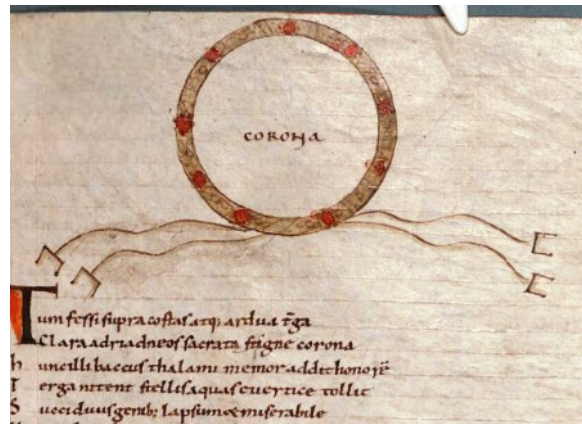 corona
Tum fessi supra costas atq; ardua t̄ga
Clara adriadneos sacrata st igne corona
h unc illi baccus thalami memor addit honorē
T erga nitent stellis a quas e vertice tollit
S ucciduus genib; lapsum & miserabile